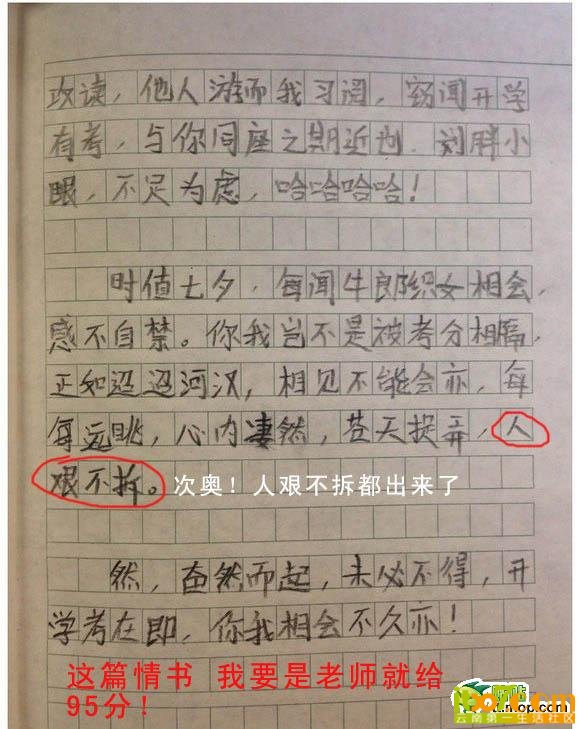 攻读，他人游而我习阅，窃闻开学
有考，与你同座之期近也．刘胖小
眼，不足为虑，哈哈哈哈！
时值七夕，每闻牛郎织女相会，
感不自禁。你我岂不是被考分相隔，
正如迢迢河汉，相见不能会亦，每
每远眺，心内凄然，苍天捉弄，人
艰不拆。次奥！人艰不拆都出来了
然，奋然而起，未必不得，开
学考在即，你我相会不久亦！
这篇情书 我要是老师就给
95分！
云南第一生活社区